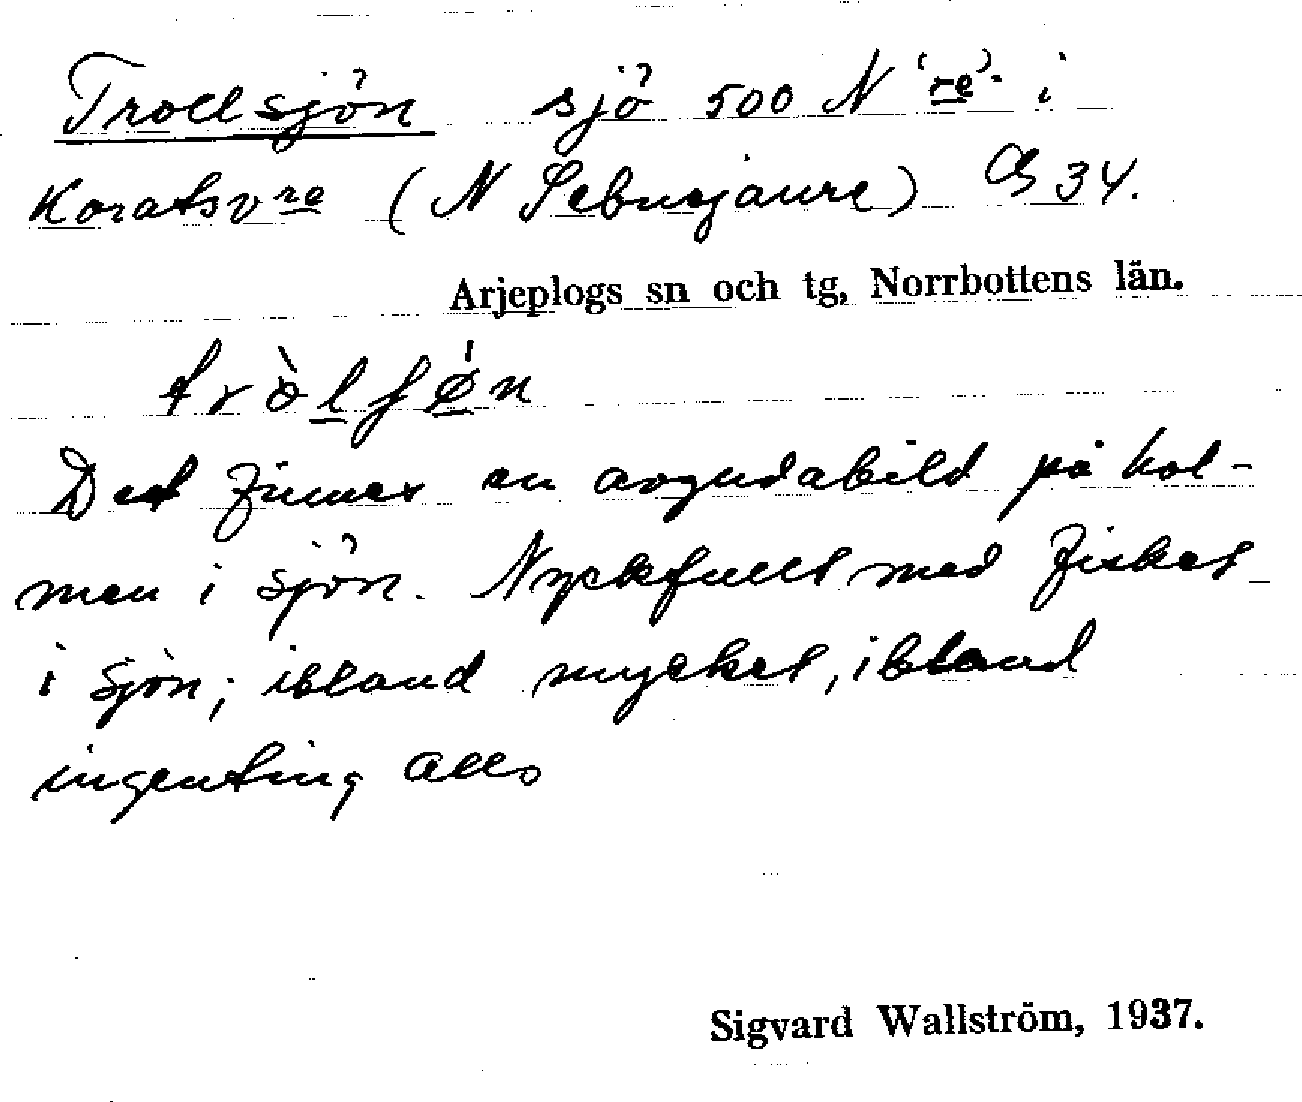 Trollsjön sjö 500 N (re). i
Koratsvre (N Sebnejaure) G 34.
Arjeplogs sn och tg, Norrbottens län.
Det finnes en avgudabild på hol-
men i sjön. Nyckfullt med fisket
i sjön; ibland mycket, ibland
ingenting alls
Sigvard Wallström, 1937.